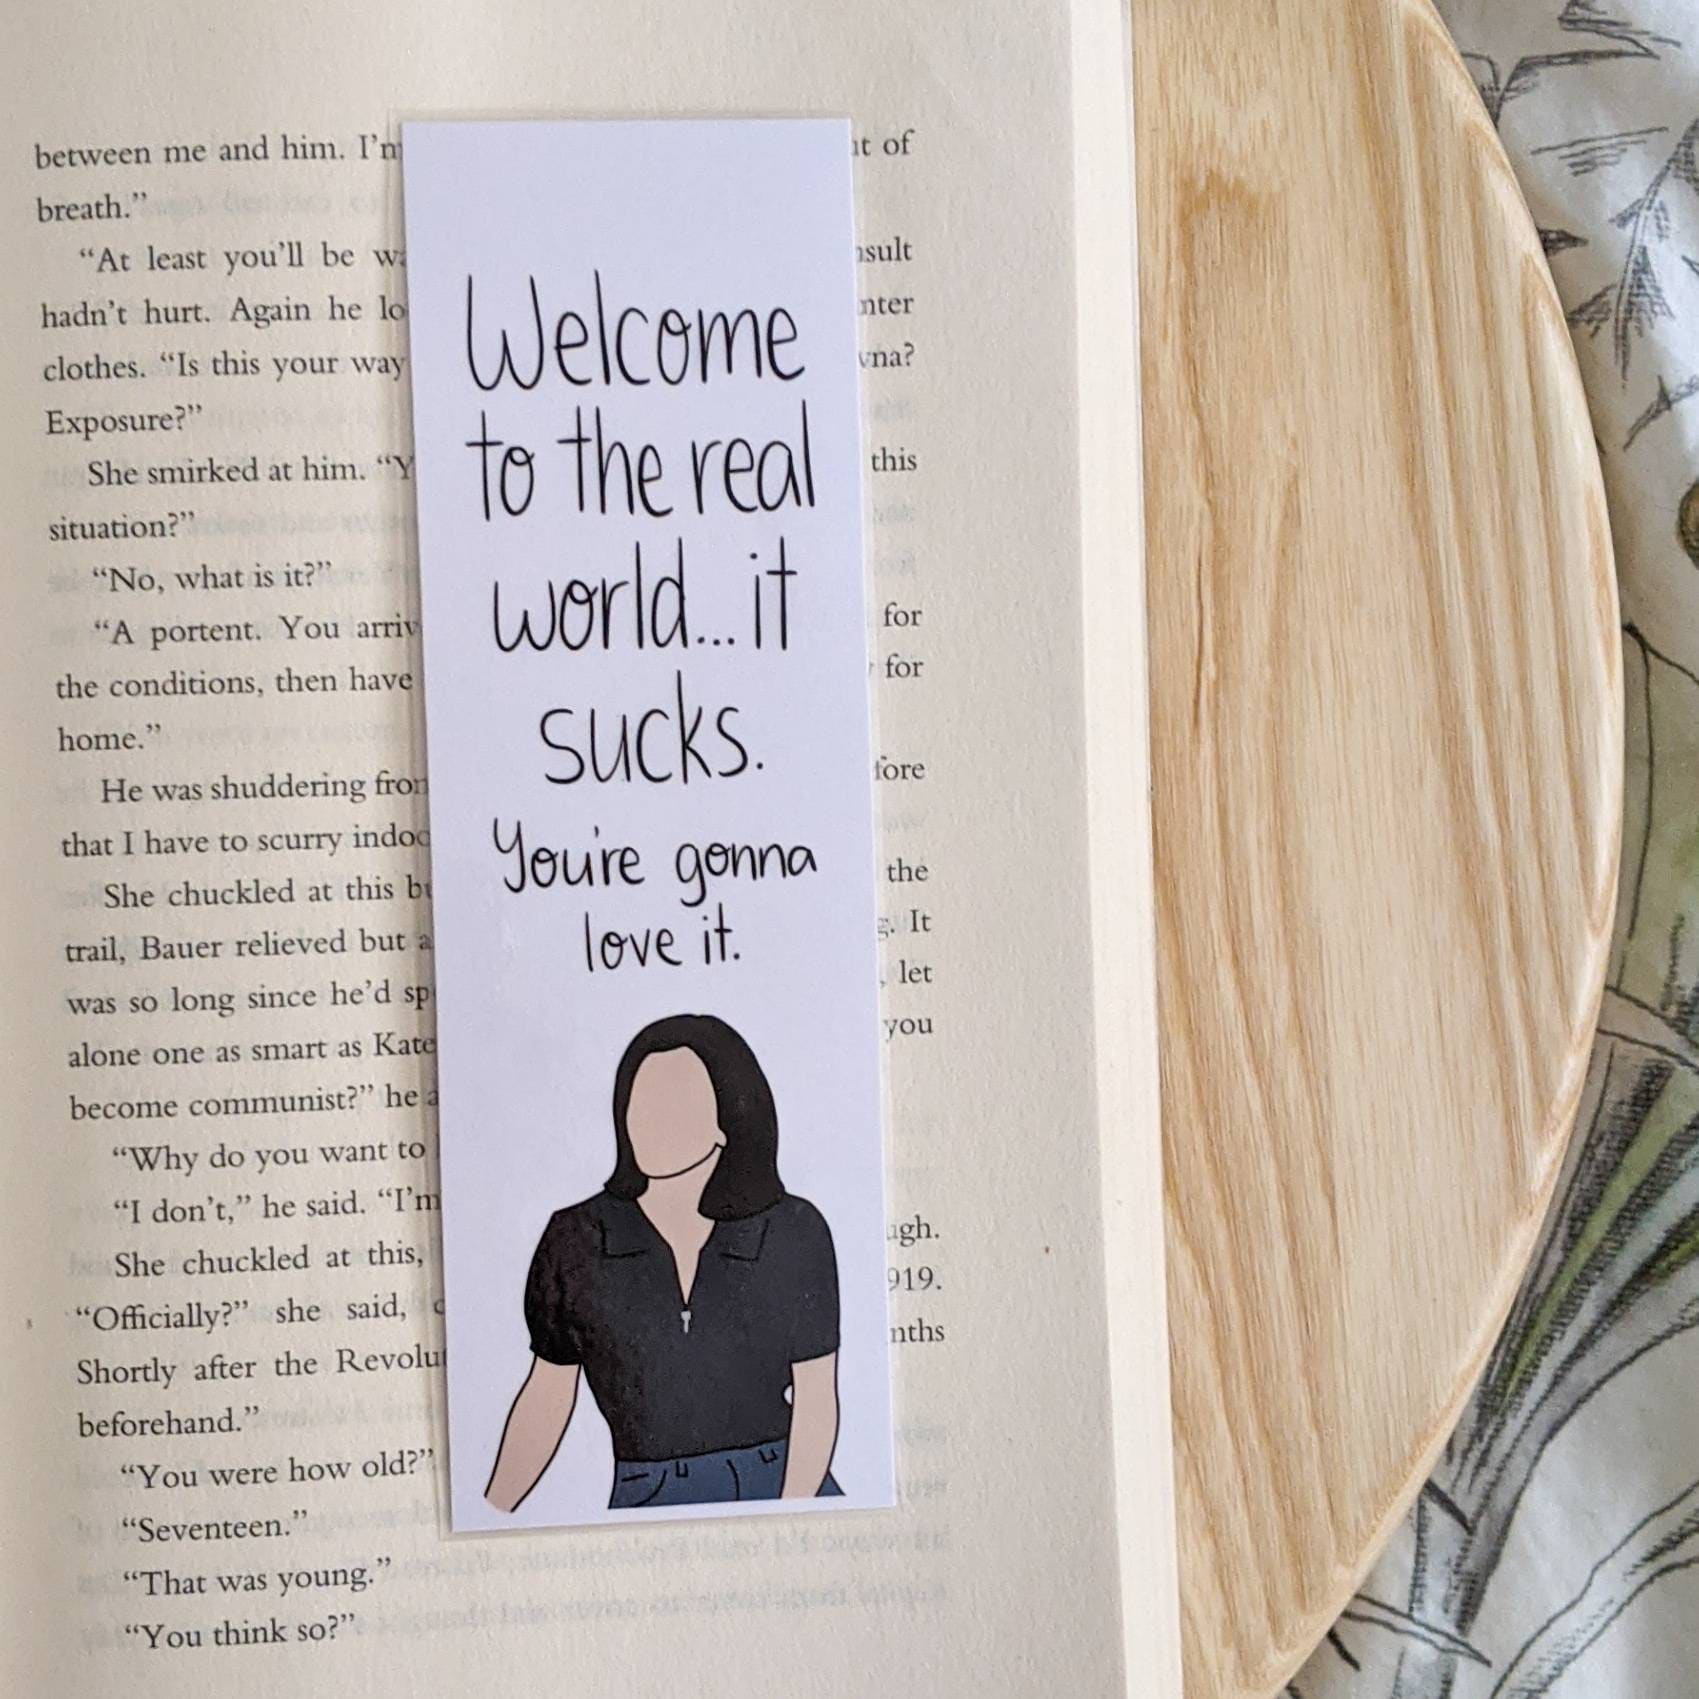 between me and him. of
breath.”
“At least you’ll be
hadn’t hurt. Again he
clothes. “Is this your way
Exposure?”
She smirked at him. this
situation?”
“No, what is it?”
“A portent. You for
the conditions, then have for
home.”
He was shuddering
that I have to scurry
She chuckled at this the
trail, Bauer relieved but It
was so long since he’d let
alone one as smart as Kate you
become communist?” he
“Why do you want to
“I don’t,” he said. “I’m
She chuckled at this,
“Officially?” she said,
Shortly after the
beforehand.”
“You were how old?”
“Seventeen.”
“That was young.”
“You think so?”
Welcome
to the real
world... it
sucks.
You're gonna
love it.